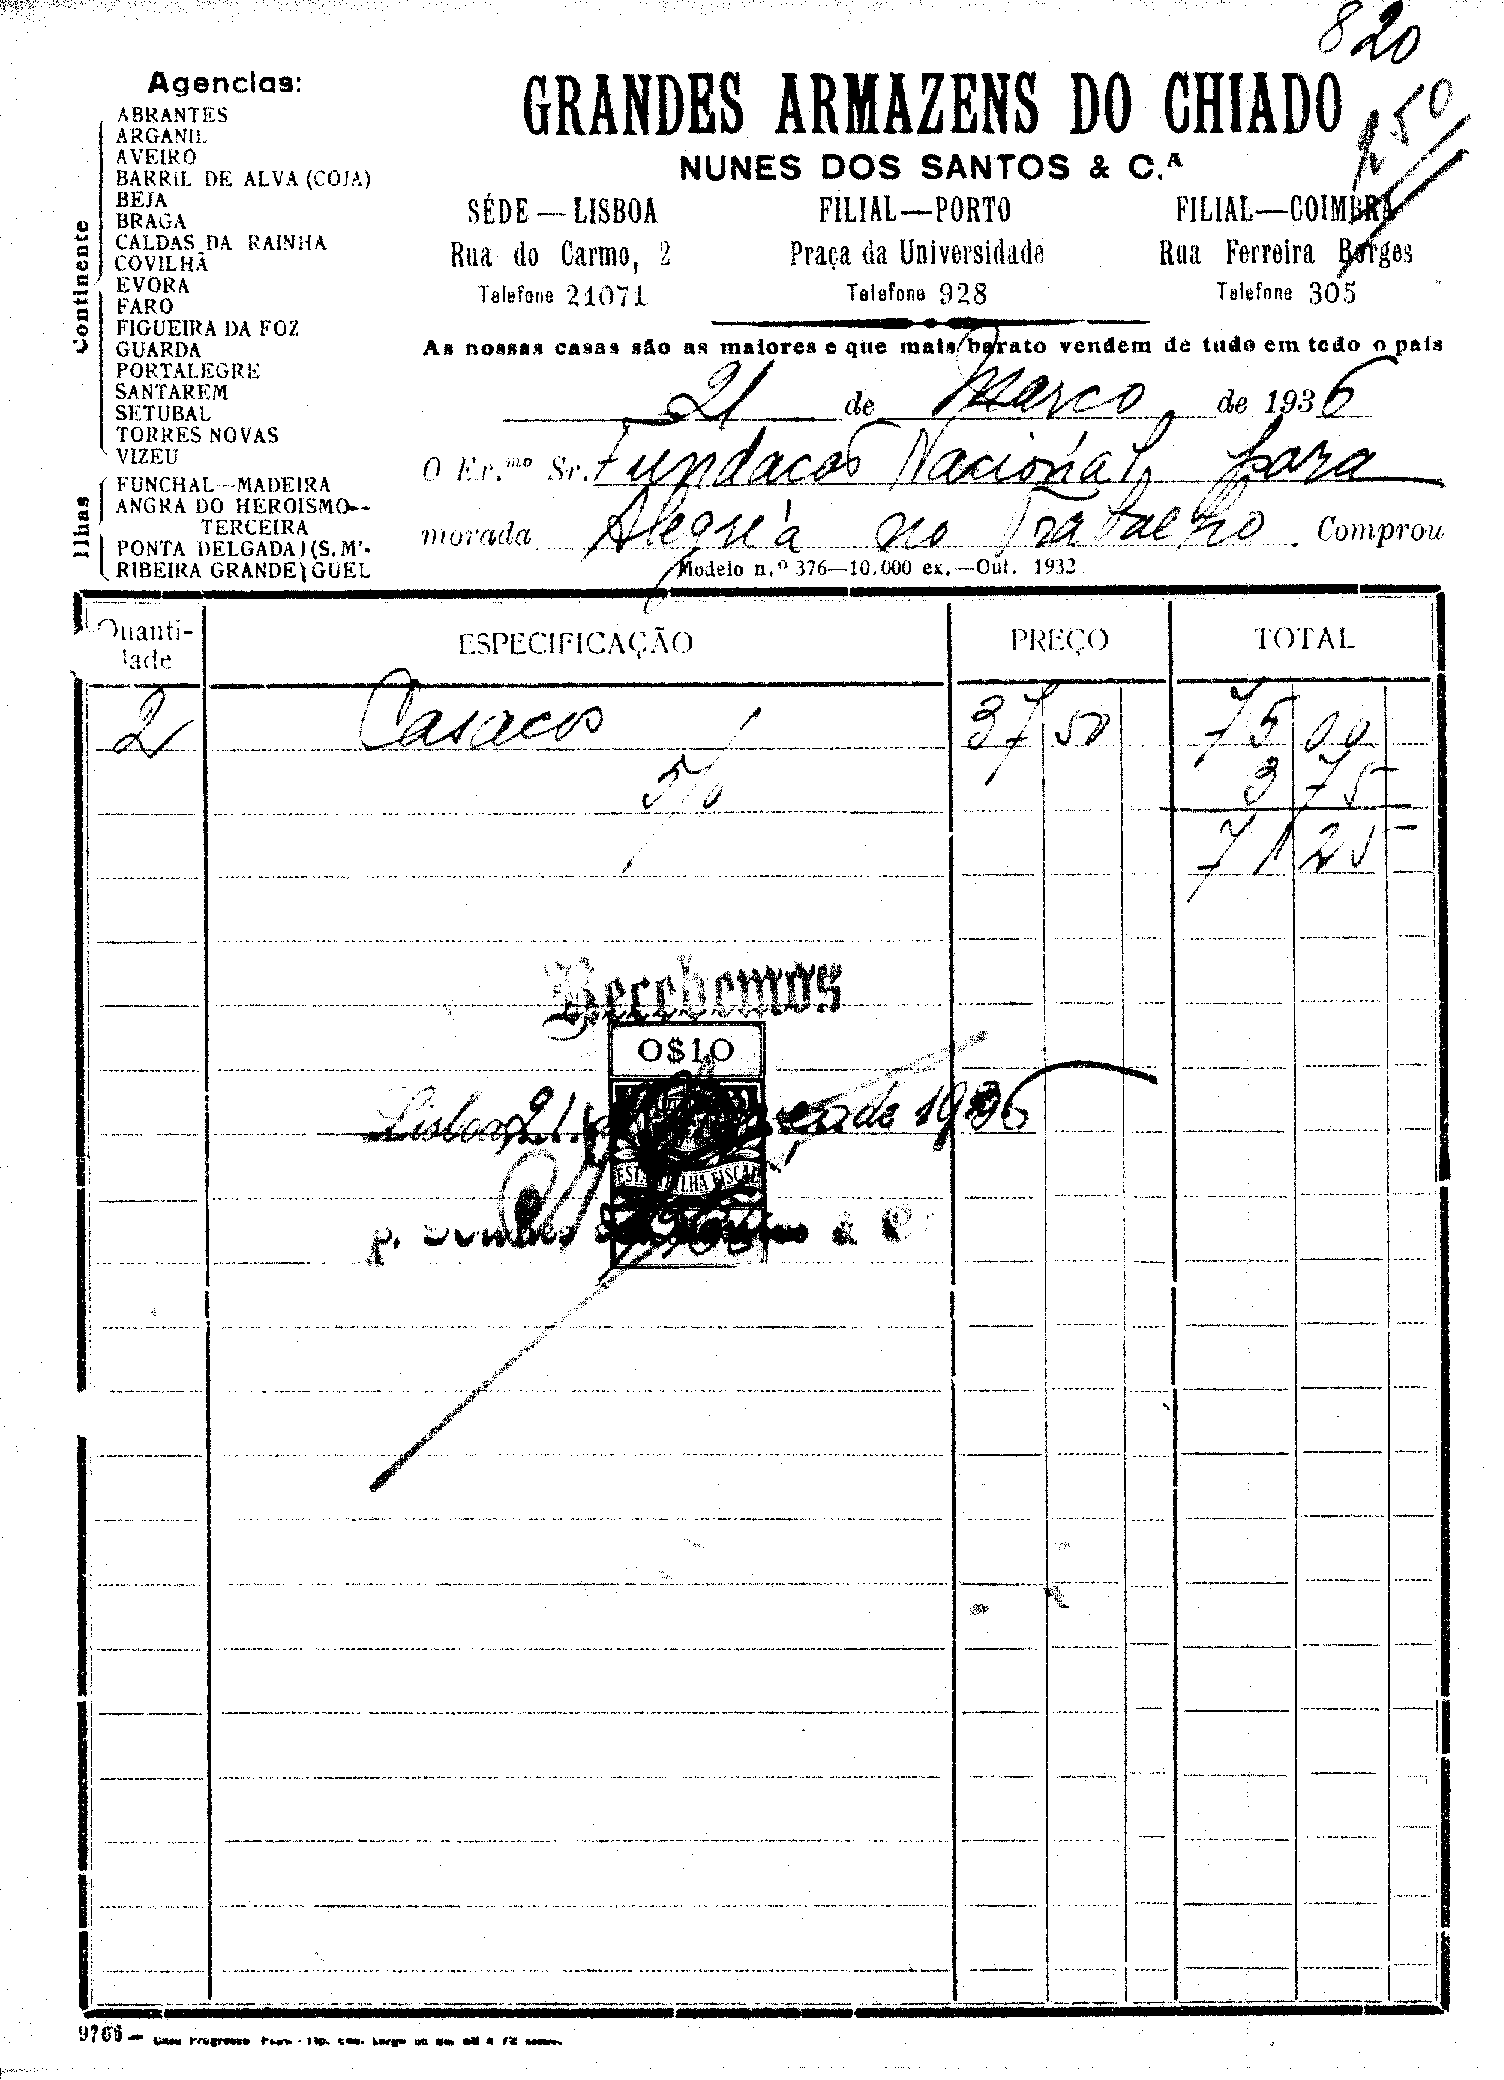 820
Agencias:
Continente
ABRANTES
ARGANIL
AVEIRO
BARRIL DE ALVA (COJA)
BEJA
BRAGA
CALDAS DA RAINHA
COVILHÃ
EVORA
FARO
FIGUEIRA DA FOZ
GUARDA
PORTALEGRE
SANTAREM
SETUBAL
TORRES NOVAS
VIZEU
Ilhas
FUNCHAL—MADEIRA
ANGRA DO HEROISMO—
TERCEIRA
PONTA DELGADA) (S. M'-
RIBEIRA GRANDE) GUEL
GRANDES ARMAZENS DO CHIADO
NUNES DOS SANTOS & C.ª
SÉDE — LISBOA FILIAL—PORTO FILIAL—COIMBRA
Rua do Carmo, 2 Praça da Universidade Rua Ferreira Borges
Telefone 21071 Telefone 928 Telefone 305
As nossas casas são as maiores e que mais barato vendem de tudo em todo o país
21 de Março de 1936
O Ex.mo Sr. Fundacos Nacional para
morada Alegria no Trabalho. Comprou
Modelo n.º 376—10.000 ex.—Out. 1932
Quanti-
dade ESPECIFICAÇÃO PREÇO TOTAL
2 Casacos 37 50 75 00
5% 3 75
71 25
Recebemos
O$10
Lisboa, 21 de 1936
ESTAMPILHA FISCAL
p. Nunes & C
9766 —